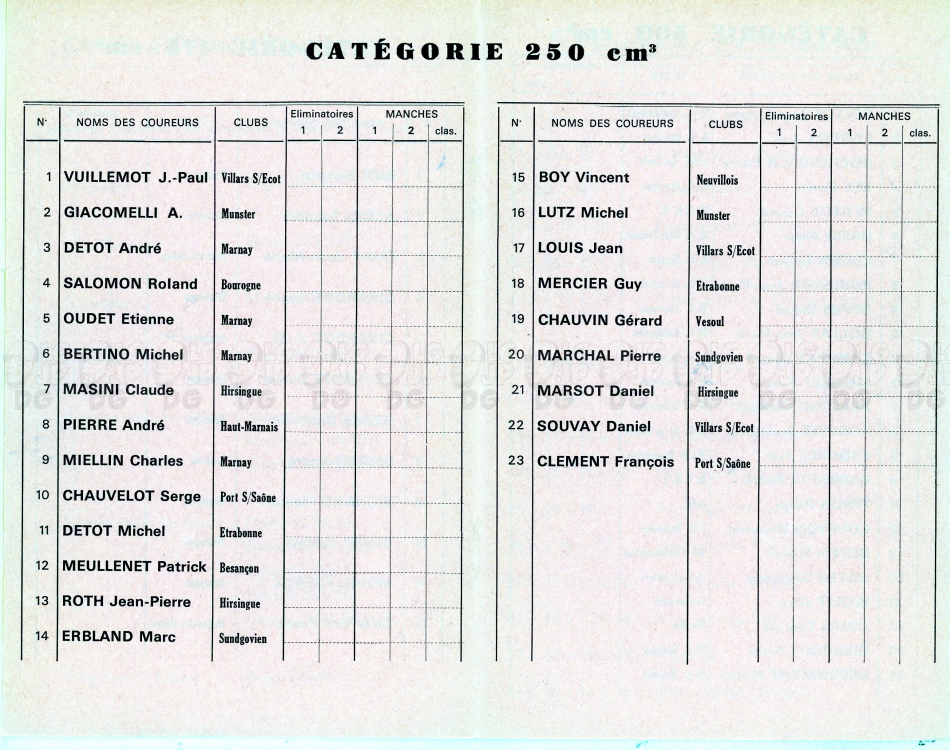 CATÉGORIE 250 cm³
N° NOMS DES COUREURS CLUBS Eliminatoires MANCHES
1 2 1 2 clas.
1 VUILLEMOT J.-Paul Villars S/Ecot
2 GIACOMELLI A. Munster
3 DETOT André Marnay
4 SALOMON Roland Bourogne
5 OUDET Etienne Marnay
6 BERTINO Michel Marnay
7 MASINI Claude Hirsingue
8 PIERRE André Haut-Marnais
9 MIELLIN Charles Marnay
10 CHAUVELOT Serge Port S/Saône
11 DETOT Michel Etrabonne
12 MEULLENET Patrick Besançon
13 ROTH Jean-Pierre Hirsingue
14 ERBLAND Marc Sundgovien
N° NOMS DES COUREURS CLUBS Eliminatoires MANCHES
1 2 1 2 clas.
15 BOY Vincent Neuvillois
16 LUTZ Michel Munster
17 LOUIS Jean Villars S/Ecot
18 MERCIER Guy Etrabonne
19 CHAUVIN Gérard Vesoul
20 MARCHAL Pierre Sundgovien
21 MARSOT Daniel Hirsingue
22 SOUVAY Daniel Villars S/Ecot
23 CLEMENT François Port S/Saône
DG DG DG DG DG DG DG DG DG DG DG DG